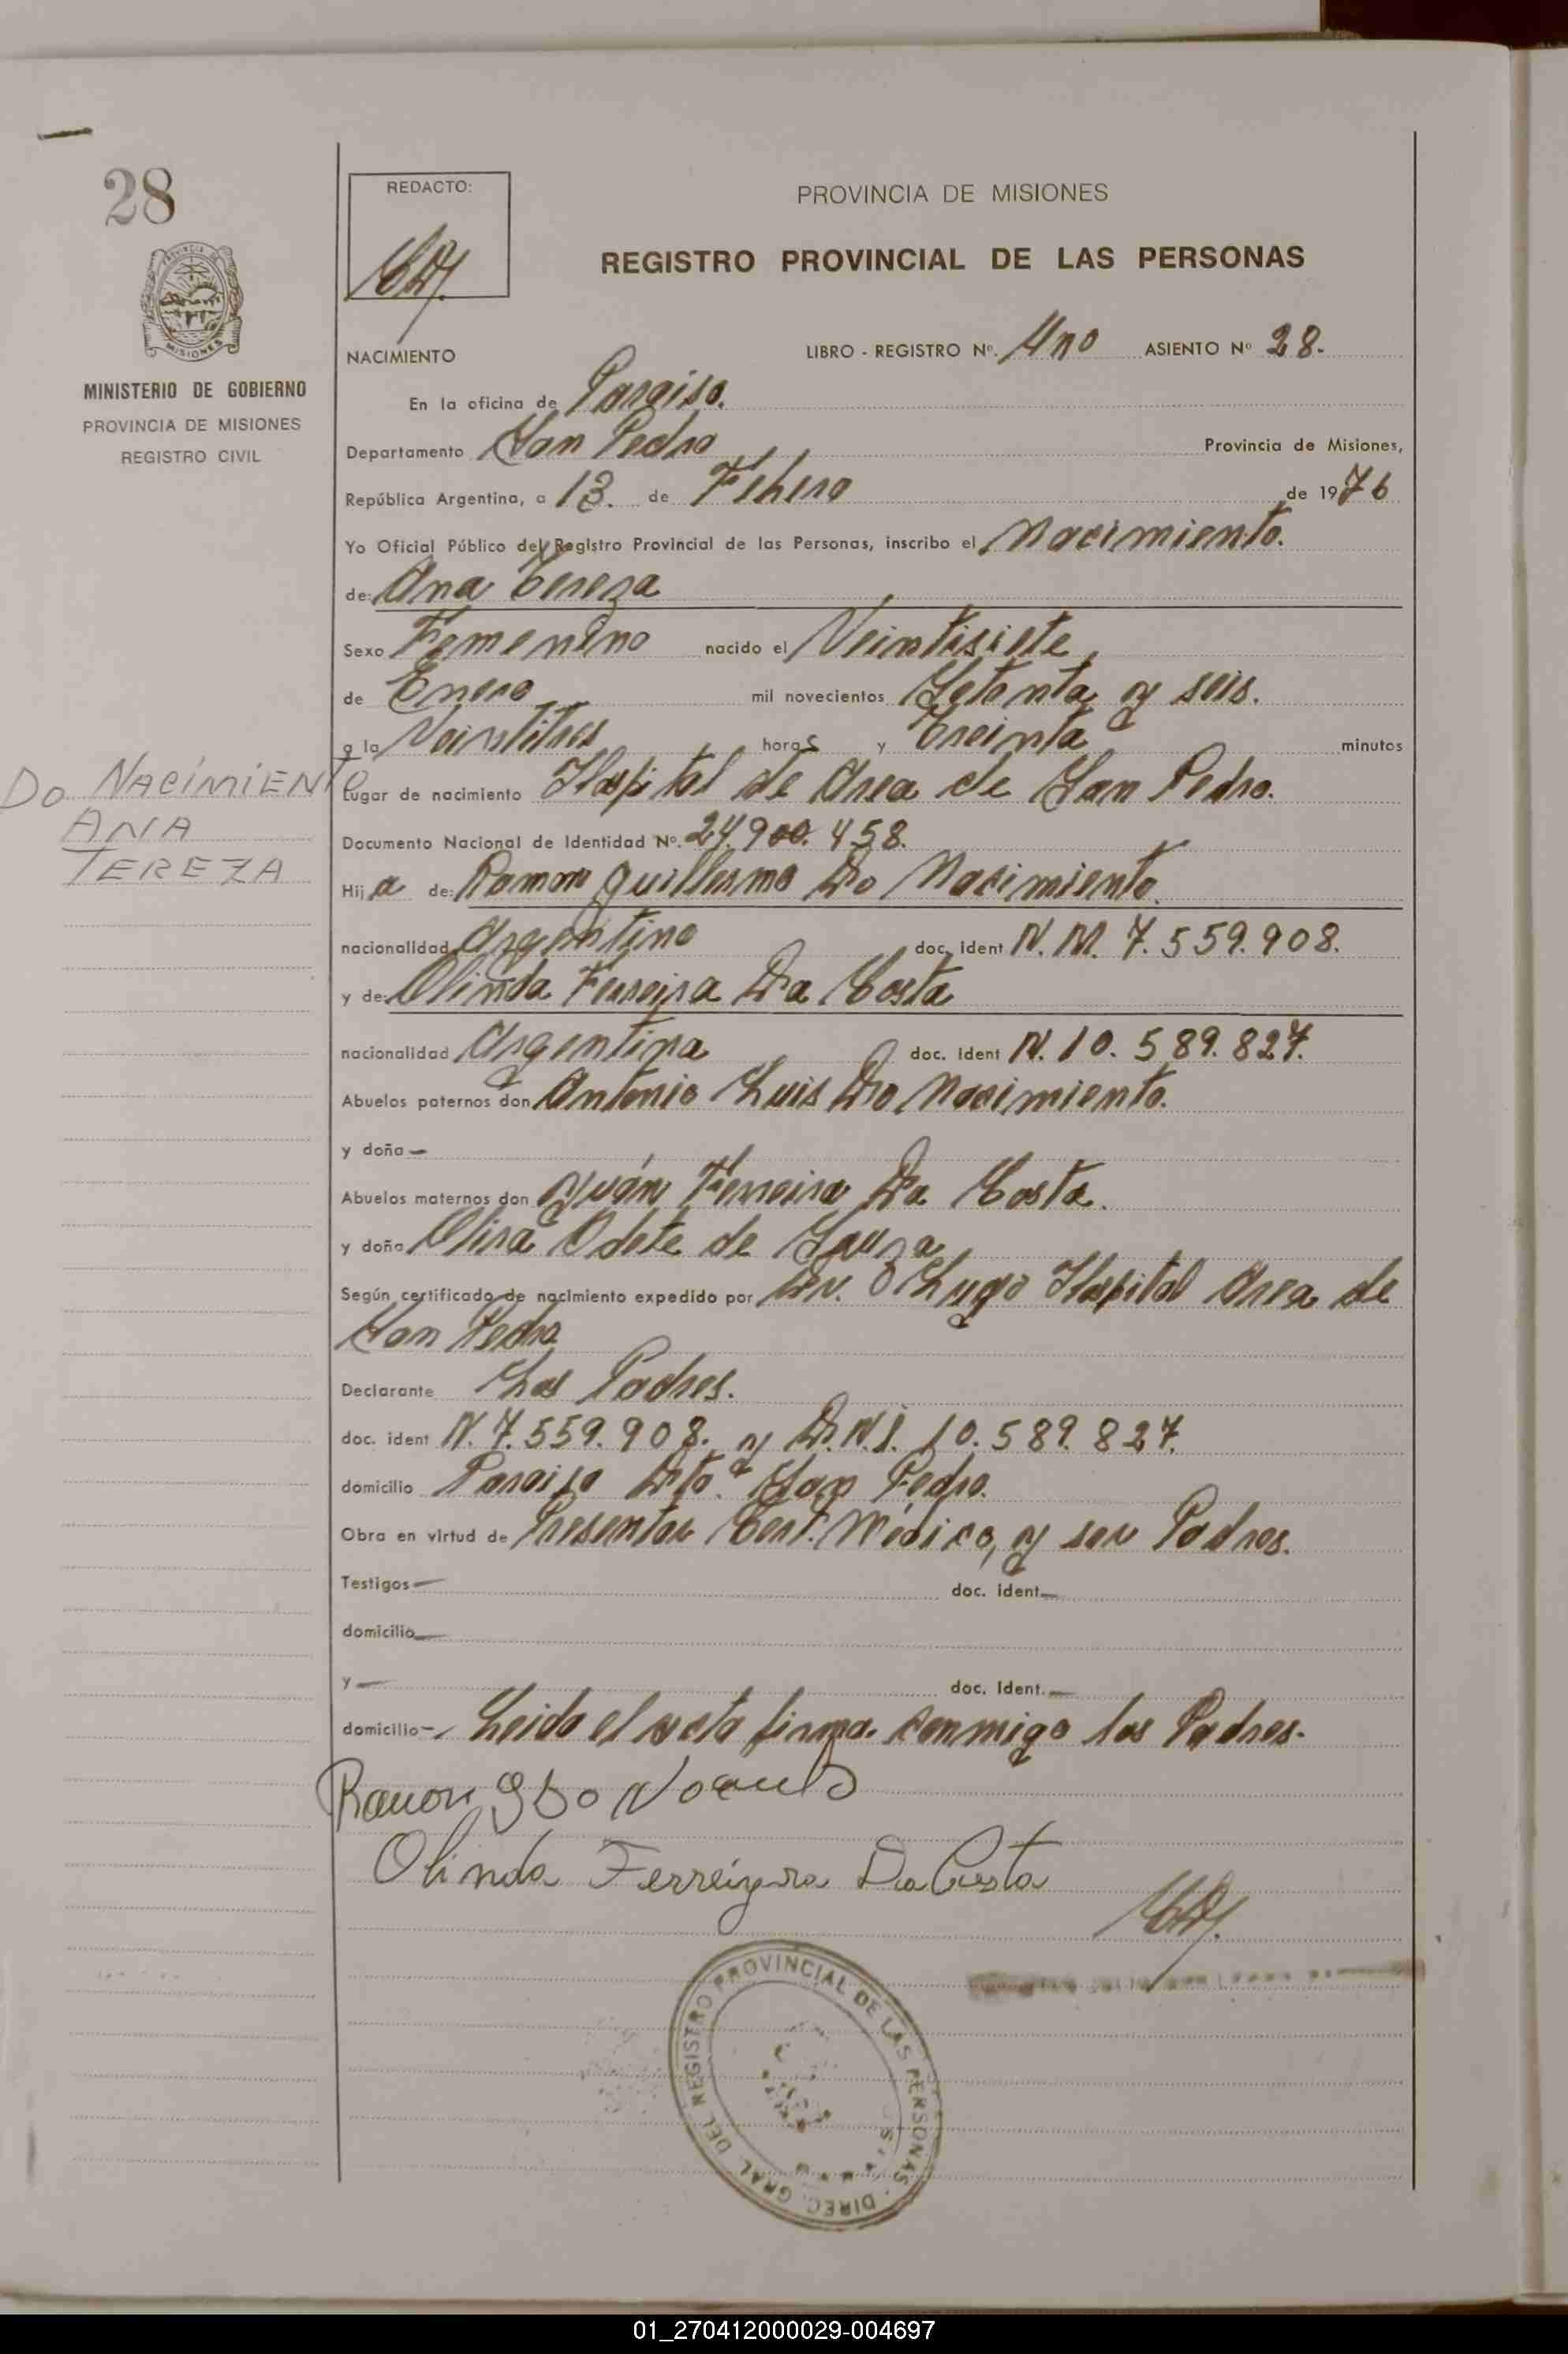 28
REDACTO:
PROVINCIA DE MISIONES
REGISTRO PROVINCIAL DE LAS PERSONAS
PROVINCIA DE
MISIONES
MINISTERIO DE GOBIERNO
PROVINCIA DE MISIONES
REGISTRO CIVIL
NACIMIENTO LIBRO - REGISTRO Nº. Uno ASIENTO Nº 28.
En la oficina de Paraiso.
Departamento San Pedro Provincia de Misiones,
República Argentina, a 13. de Febrero de 1976
Yo Oficial Público del Registro Provincial de las Personas, inscribo el Nacimiento.
de: Ana Tereza
Sexo Femenino nacido el Veintisiete
de Enero mil novecientos Setenta y seis.
a la Veintitres horas y Treinta minutos
Lugar de nacimiento Hospital de Area de San Pedro.
Do NACIMIENTO
ANA
TEREZA
Documento Nacional de Identidad Nº. 24.900.458.
Hija de: Ramon Guillermo Do Nacimiento.
nacionalidad Argentino doc. ident N. M. 7.559.908.
y de: Olinda Ferreira Da Costa
nacionalidad Argentina doc. ident N. 10.589.827.
Abuelos paternos don Antonio Luis Do Nacimiento.
y doña —
Abuelos maternos don Juán Ferreira Da Costa.
y doña Odete de Souza
Según certificado de nacimiento expedido por Dr. Lugo Hospital Area de
San Pedro
Declarante Los Padres.
doc. ident N. 7.559.908. y D.N.I. 10.589.827.
domicilio Paraiso Dto. San Pedro.
Obra en virtud de Presentar Cert. Médico, y ser Padres.
Testigos — doc. ident —
domicilio —
y — doc. Ident. —
domicilio — Leida el acta firma conmigo los Padres.
Ramon
Olinda Ferreiyra Da Costa
DIREC. GRAL. DEL REGISTRO PROVINCIAL DE LAS PERSONAS
01_270412000029-004697